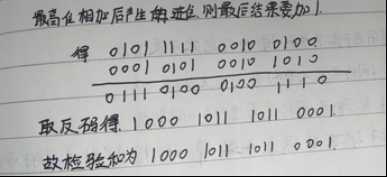 最高位相加后产生的进位,则最后结果要加1.
得 0101 1111 0010 0100
0001 0101 0010 1010
0111 0100 0100 1110
取反码得 1000 1011 1011 0001.
故检验和为 1000 1011 1011 0001.